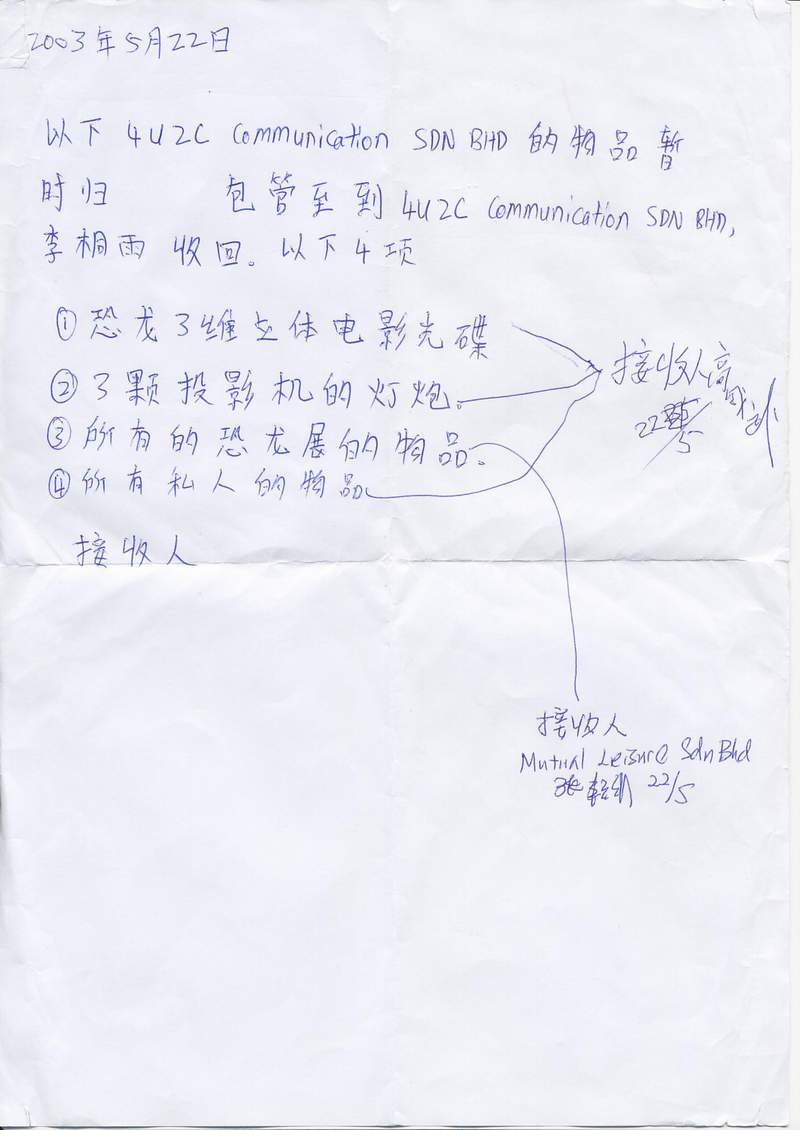 2003年5月22日
以下 4U2C Communication SDN BHD 的物品暂
时归 包管至到 4U2C Communication SDN BHD,
李桐雨 收回。以下4项
① 恐龙3维立体电影光碟
② 3颗投影机的灯炮。
③ 所有的恐龙展的物品。
④ 所有私人的物品
接收人
22/5
接收人
接收人
Mutual Leisure Sdn Bhd
22/5